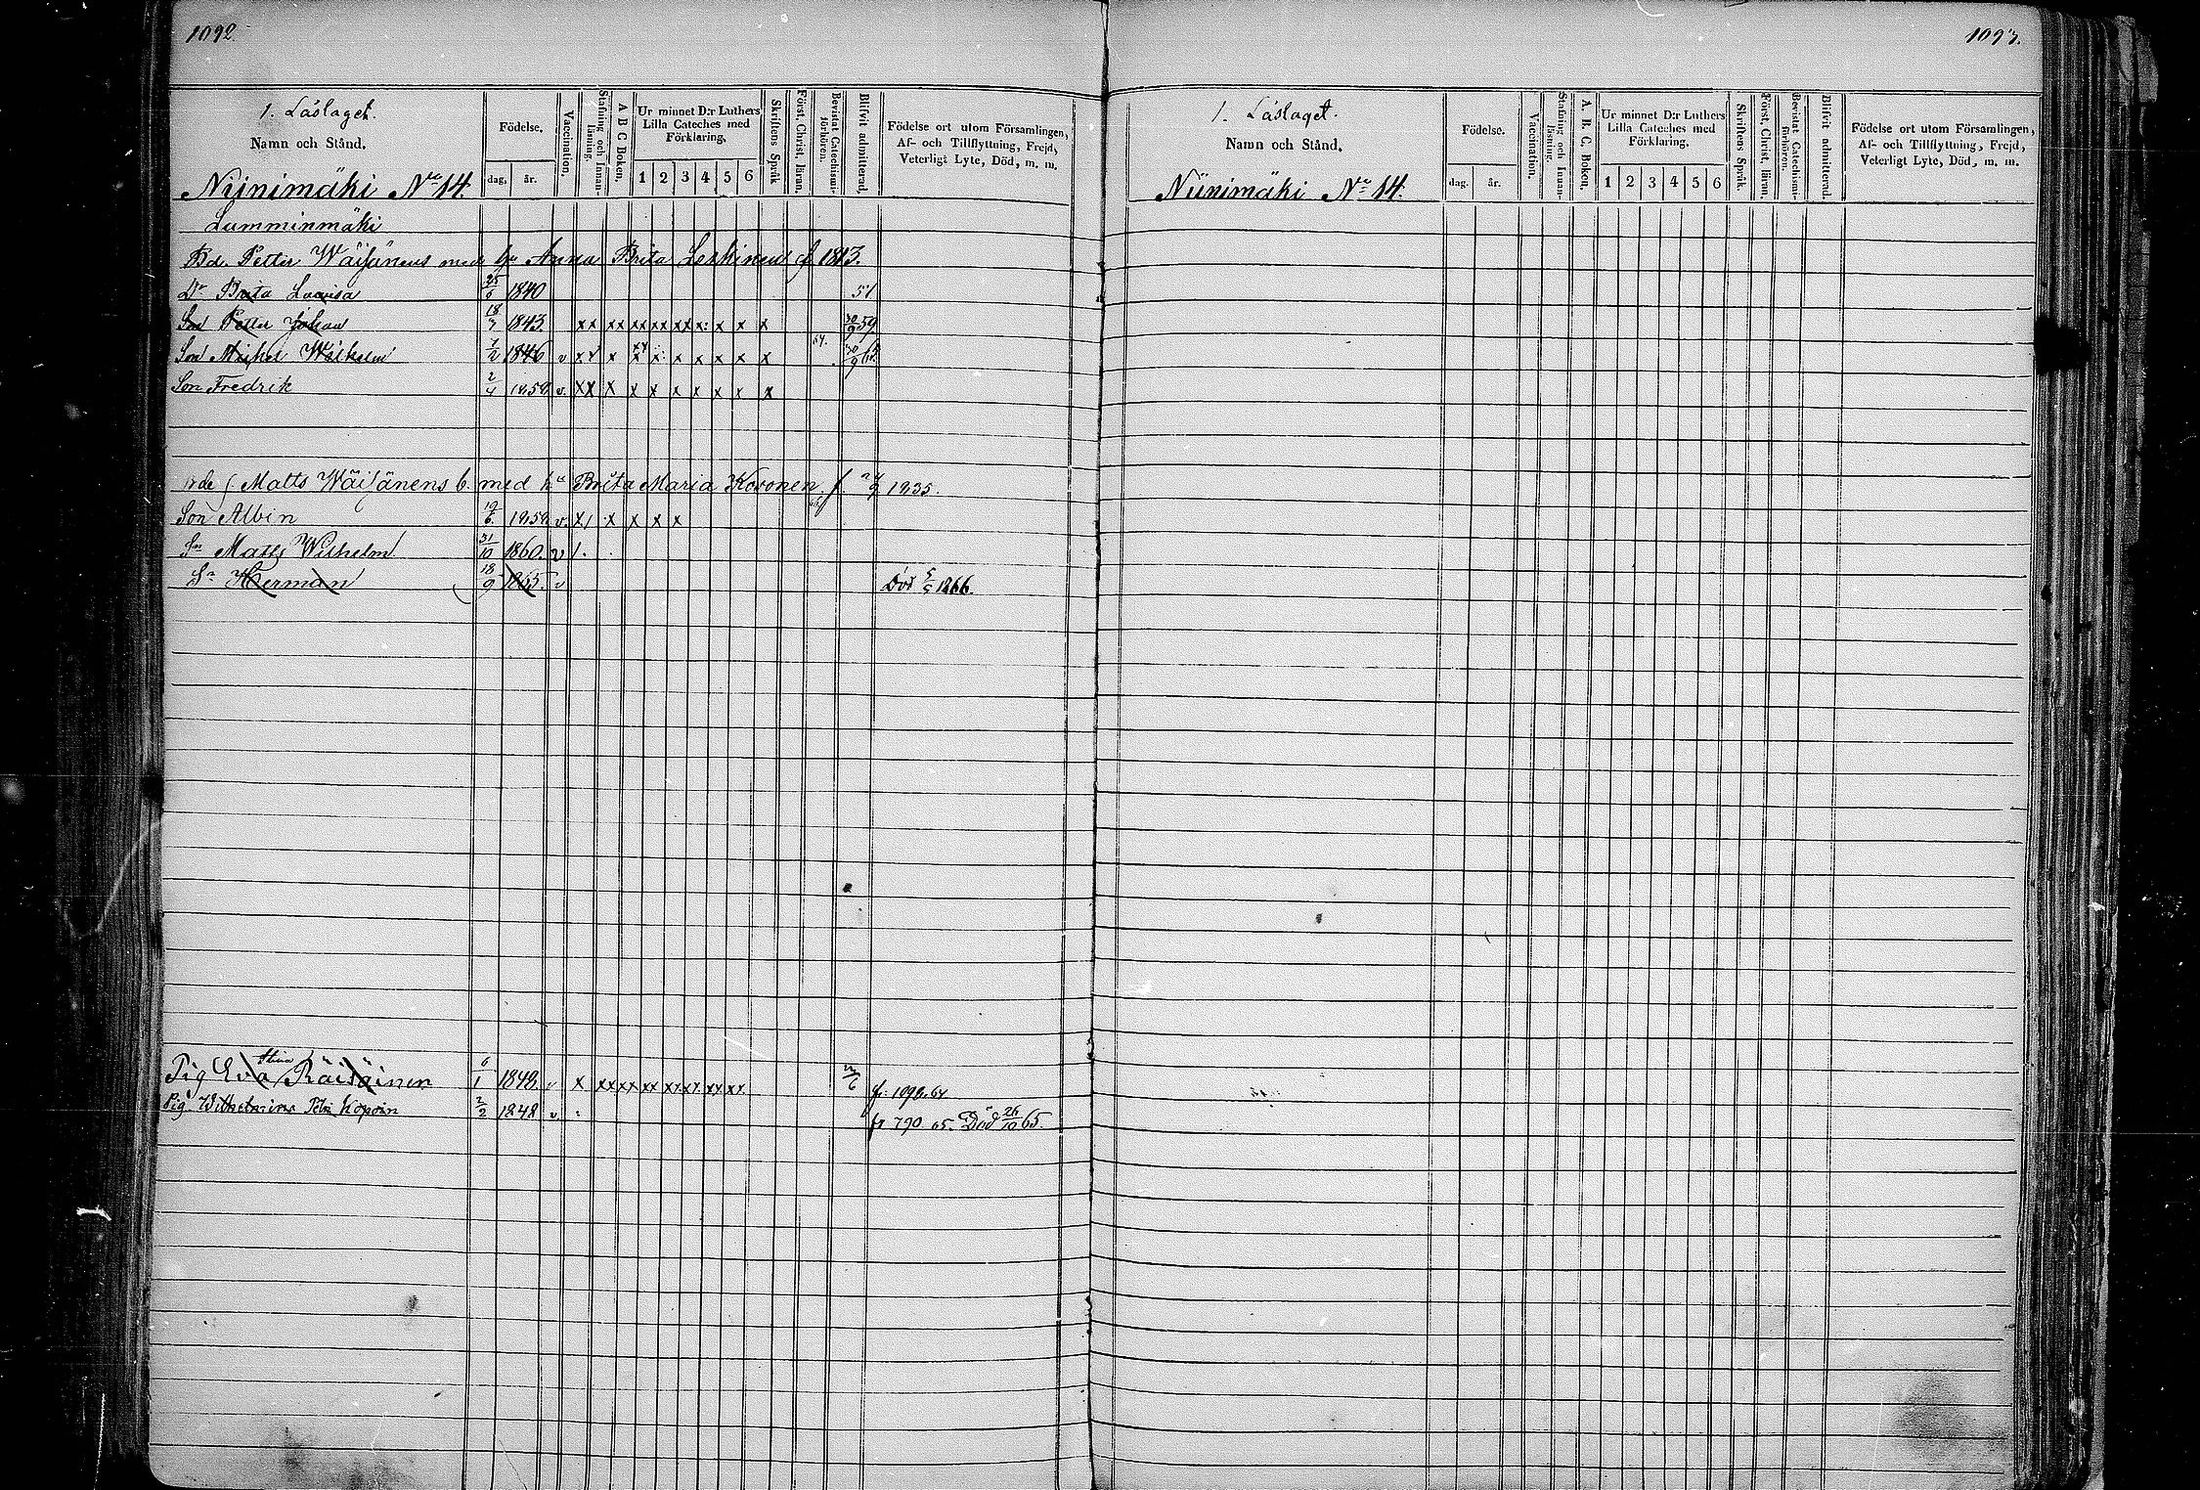 1092.
1. Läslaget.
Namn och Stånd.
Födelse.
dag.
år.
Vaccination.
Stafning och Innan-
läsning.
A B C Boken.
Ur minnet D:r Luthers
Lilla Cateches med
Förklaring.
1 2 3 4 5 6
Skriftens Språk
Först. Christ. läran.
Bevistat Catechismi-
förhören.
Blifvit admitterad.
Födelse ort utom Församlingen,
Af- och Tillflyttning, Frejd,
Veterligt Lyte, Död, m. m.
Niinimäki No 14.
Lumminmäki
Bd. Petter Wäisänens med hu Anna Brita Leskinens f 1813.
Dr Brita Lovisa 25/6 1840 51
Son Petter Johan 18/7 1843. xx xx xx xx x: x x x 30/9 59
Son Michel Wilhelm 1/2 1846 v x x x x x x x x x 64.
Son Fredrik 2/4 1859 v. xx x x x x x x x x
Matts Wäisänens b. med hu Brita Maria Kovonen. f. 1835.
Son Albin 19/6 1859. v. x/ x x x x
Sn Matts Wilhelm 31/10 1860. v /.
Sn Herman 18/9 1865. v Död 5/5 1866.
Pig Eva Stina Räisäinen 6/1 1849. v x xx xx xx xx xx xx fr. 1099. 64
Pig. Wilhelmina Petri Kopoin 2/2 1848 v. fr 790. 65. Död 26/10 65.
1093.
1. Läslaget.
Namn och Stånd.
Födelse.
dag.
år.
Vaccination.
Stafning och Innan-
läsning.
A. B. C. Boken.
Ur minnet D:r Luthers
Lilla Cateches med
Förklaring.
1 2 3 4 5 6
Skriftens Språk.
Först. Christ. läran.
Bevistat Catechismi-
förhören.
Blifvit admitterad.
Födelse ort utom Församlingen,
Af- och Tillflyttning, Frejd,
Veterligt Lyte, Död, m. m.
Niinimäki No 14.